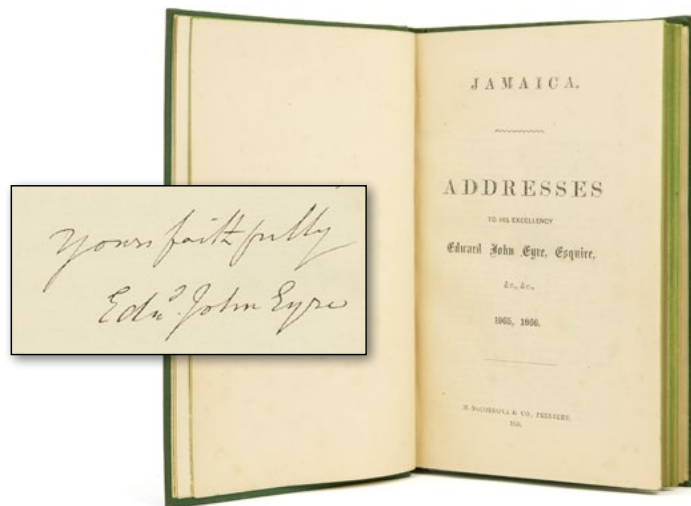 yours faithfully
Edwd. John Eyre
JAMAICA.
ADDRESSES
TO HIS EXCELLENCY
Edward John Eyre, Esquire,
&c., &c.,
1865, 1866.
& CO., PRINTERS.